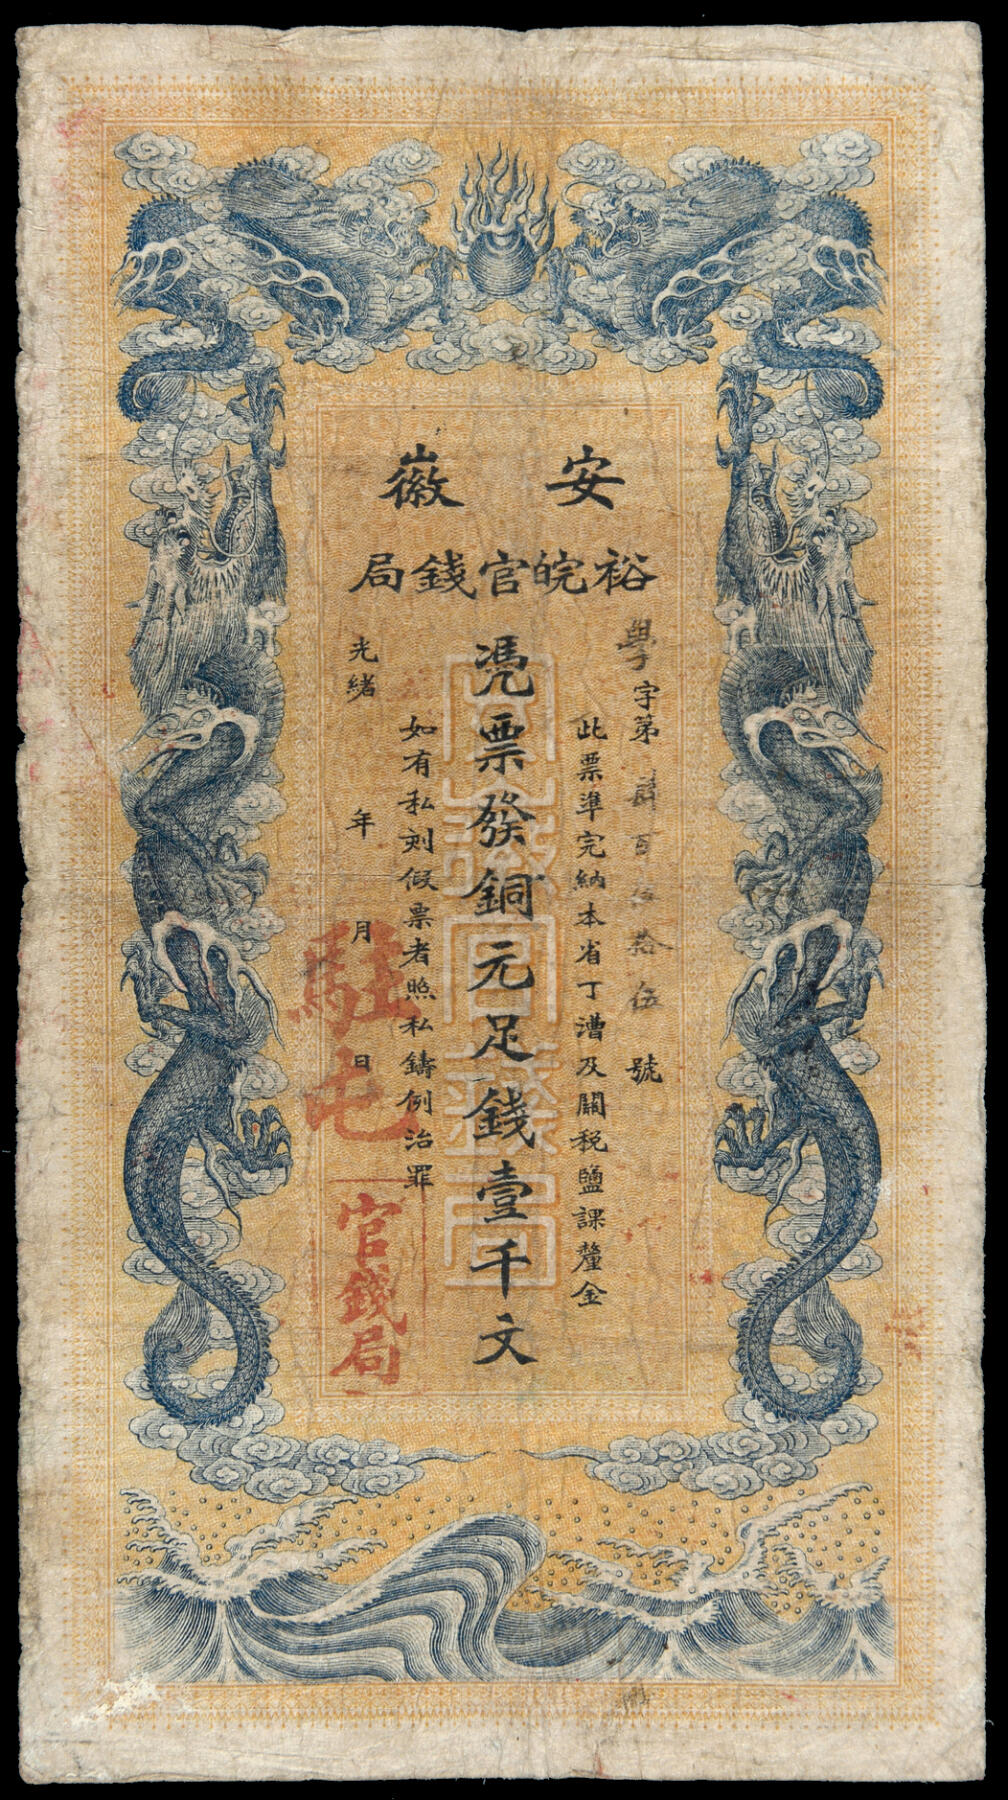 安徽
裕皖官錢局
學字第肆百伍拾伍號
此票準完納本省丁漕及關稅鹽課釐金
憑票發銅元足錢壹千文
如有私刻假票者照私鑄例治罪
光緒 年 月 日
駐屯
官錢局